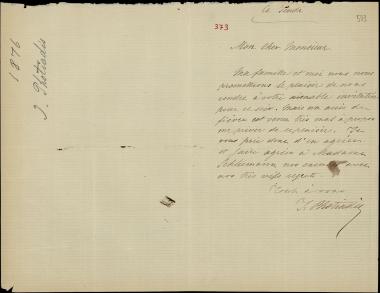 Ce Lundi
373
513
Mon cher Monsieur
Ma famille et moi nous nous
promettions le plaisir de nous
rendre à votre aimable invitation
pour ce soir. Mais un accès de
fièvre est venu très mal à propos
me priver de ce plaisir. Je
vous prie donc d'en agréer
et faire agréer à Madame
Schliemann nos excuses avec
nos très vifs regrets.
Tout à vous
J. Photiadis
1876
J. Photiadis